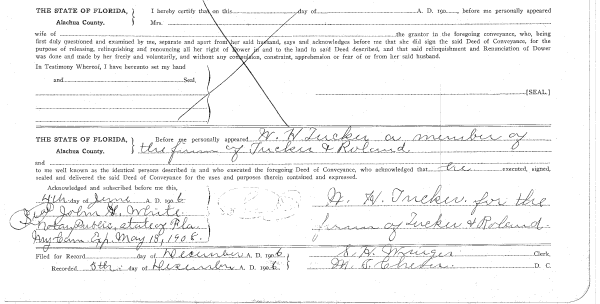 THE STATE OF FLORIDA, I hereby certify that on this day of A. D. 190 , before me personally appeared
Alachua County. Mrs.
wife of the grantor in the foregoing conveyance, who, being
first duly questioned and examined by me, separate and apart from her said husband, says and acknowledges before me that she did sign the said Deed of Conveyance, for the
purpose of releasing, relinquishing and renouncing all her right of Dower in and to the land in said Deed described, and that said relinquishment and Renunciation of Dower
was done and made by her freely and voluntarily, and without any compulsion, constraint, apprehension or fear of or from her said husband.
In Testimony Whereof, I have hereunto set my hand
and Seal,
[SEAL.]
THE STATE OF FLORIDA, Before me personally appeared W. H Tucker a member of
Alachua County. the firm of Tucker & Roland
and
to me well known as the identical persons described in and who executed the foregoing Deed of Conveyance, who acknowledged that he executed, signed,
sealed and delivered the said Deed of Conveyance for the uses and purposes therein contained and expressed.
Acknowledged and subscribed before me this,
4th day of June A. D. 1906
John White W. H. Tucker for the
Notary Public, State of Fla. firm of Tucker & Roland.
My Com. Exp. May 18, 1908.
Filed for Record day of December A. D. 1906 S. H. Wienges Clerk.
Recorded 5th. day of December A. D. 1906 M. D. C.